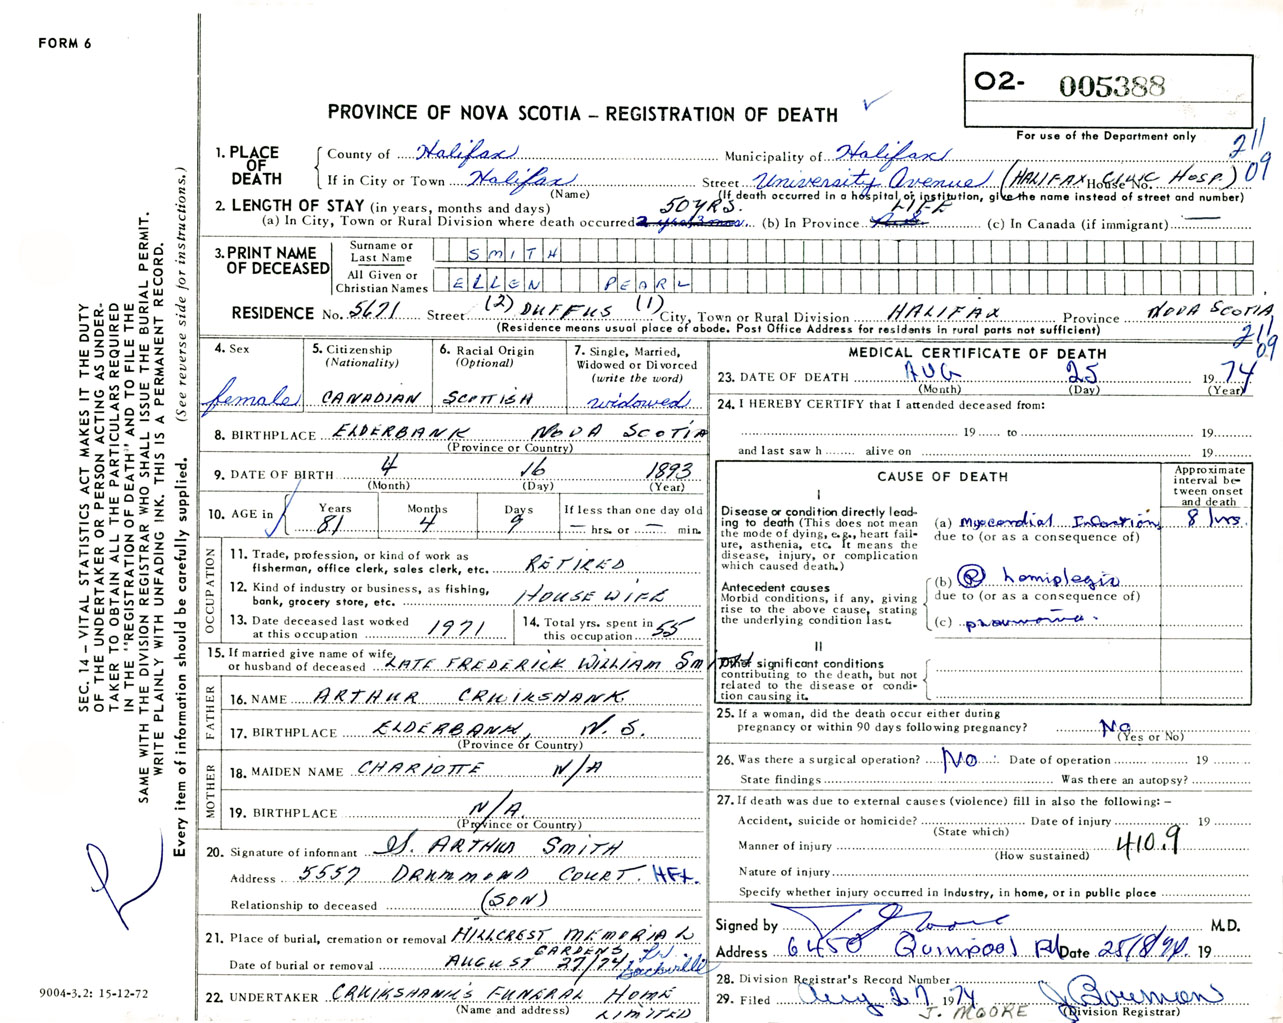 FORM 6
O2- 005388
PROVINCE OF NOVA SCOTIA – REGISTRATION OF DEATH
For use of the Department only
211
09
1. PLACE OF DEATH
County of Halifax Municipality of Halifax
If in City or Town Halifax Street University Avenue (HALIFAX CLINIC HOSP.) House No.
(Name) (If death occurred in a hospital or institution, give the name instead of street and number)
2. LENGTH OF STAY (in years, months and days) 50 YRS. LIFE
(a) In City, Town or Rural Division where death occurred (b) In Province N.S. (c) In Canada (if immigrant) —
3. PRINT NAME OF DECEASED
Surname or Last Name SMITH
All Given or Christian Names ELLEN PEARL
RESIDENCE No. 5671 Street (2) DUFFUS (1) City, Town or Rural Division HALIFAX Province NOVA SCOTIA
(Residence means usual place of abode. Post Office Address for residents in rural parts not sufficient)
211
09
4. Sex female
5. Citizenship (Nationality) CANADIAN
6. Racial Origin (Optional) SCOTTISH
7. Single, Married, Widowed or Divorced (write the word) widowed
8. BIRTHPLACE ELDERBANK NOVA SCOTIA
(Province or Country)
9. DATE OF BIRTH 4 16 1893
(Month) (Day) (Year)
10. AGE in Years 81 Months 4 Days 9 If less than one day old — hrs. or — min.
OCCUPATION
11. Trade, profession, or kind of work as fisherman, office clerk, sales clerk, etc. RETIRED
12. Kind of industry or business, as fishing, bank, grocery store, etc. HOUSEWIFE
13. Date deceased last worked at this occupation 1971
14. Total yrs. spent in this occupation 55
15. If married give name of wife or husband of deceased LATE FREDERICK WILLIAM SMITH
FATHER
16. NAME ARTHUR CRUIKSHANK
17. BIRTHPLACE ELDERBANK, N.S.
(Province or Country)
MOTHER
18. MAIDEN NAME CHARLOTTE N/A
19. BIRTHPLACE N/A
(Province or Country)
20. Signature of informant ARTHUR SMITH
Address 5557 DRUMMOND COURT. HFX.
Relationship to deceased (SON)
21. Place of burial, cremation or removal HILLCREST MEMORIAL GARDENS Lr. Sackville
Date of burial or removal AUGUST 27/74
22. UNDERTAKER CRUIKSHANK'S FUNERAL HOME LIMITED
(Name and address)
MEDICAL CERTIFICATE OF DEATH
23. DATE OF DEATH AUG 25 1974
(Month) (Day) (Year)
24. I HEREBY CERTIFY that I attended deceased from:
19 to 19
and last saw h alive on 19
CAUSE OF DEATH
Approximate interval between onset and death
I
Disease or condition directly leading to death (This does not mean the mode of dying, e.g., heart failure, asthenia, etc. It means the disease, injury, or complication which caused death.)
(a) Myocardial Infarction 8 hrs.
due to (or as a consequence of)
Antecedent causes
Morbid conditions, if any, giving rise to the above cause, stating the underlying condition last.
(b) (R) hemiplegia
due to (or as a consequence of)
(c) pneumonia.
II
Other significant conditions contributing to the death, but not related to the disease or condition causing it.
25. If a woman, did the death occur either during pregnancy or within 90 days following pregnancy? No
(Yes or No)
26. Was there a surgical operation? No Date of operation 19
State findings Was there an autopsy?
27. If death was due to external causes (violence) fill in also the following: –
Accident, suicide or homicide? Date of injury 19
(State which)
Manner of injury 410.9
(How sustained)
Nature of injury
Specify whether injury occurred in industry, in home, or in public place
Signed by M.D.
Address 6450 Quinpool Rd Date 25/8/74. 19
28. Division Registrar's Record Number
29. Filed Aug 27 1974 J Bowman
J. MOORE (Division Registrar)
SEC. 14 – VITAL STATISTICS ACT MAKES IT THE DUTY
OF THE UNDERTAKER OR PERSON ACTING AS UNDER-
TAKER TO OBTAIN ALL THE PARTICULARS REQUIRED
IN THE "REGISTRATION OF DEATH" AND TO FILE THE
SAME WITH THE DIVISION REGISTRAR WHO SHALL ISSUE THE BURIAL PERMIT.
WRITE PLAINLY WITH UNFADING INK. THIS IS A PERMANENT RECORD.
Every item of information should be carefully supplied. (See reverse side for instructions.)
9004-3.2: 15-12-72